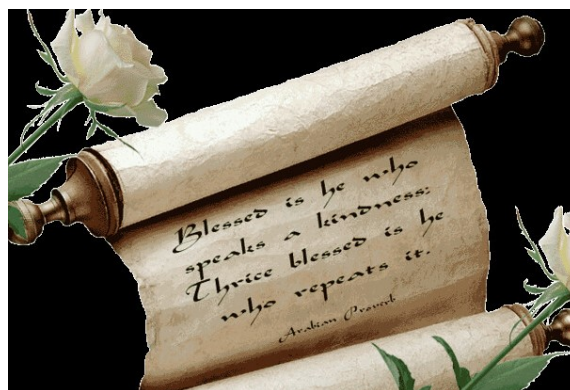 Blessed is he who
speaks a kindness;
Thrice blessed is he
who repeats it.
Arabian Proverb